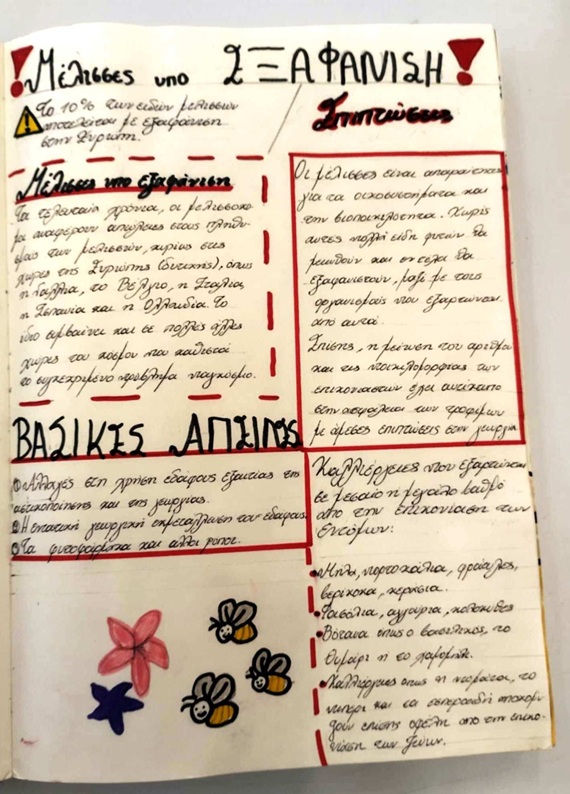 ! Μέλισσες υπο ΣΞΑΦΑΝΙΣΗ !
Το 10% των ειδών μελισσών
απειλείται με εξαφάνιση
στην Ευρώπη.
Μέλισσες υπο εξαφάνιση
Τα τελευταία χρόνια, οι μελισσοκο-
μοι αναφέρουν απώλειες στους πληθυ-
σμους των μελισσών, κυρίως στις
χώρες της Ευρώπης (δυτικής), όπως
η Γαλλία, το Βέλγιο, η Ιταλία,
η Ισπανία και η Ολλανδία. Το
ίδιο συμβαίνει και σε πολλές άλλες
χώρες του κόσμου που καθιστά
το συγκεκριμένο πρόβλημα παγκόσμιο.
ΒΑΣΙΚΕΣ ΑΠΕΙΛΕΣ
Αλλαγές στη χρήση εδάφους εξαιτίας της
αστικοποίησης και της γεωργίας.
Η εντατική γεωργική εκμετάλλευση του εδάφους
Τα φυτοφάρμακα και άλλοι ρύποι.
Επιπτώσεις
Οι μέλισσες είναι απαραίτητες
για τα οικοσυστήματα και
την βιοποικιλότητα. Χωρίς
αυτές πολλά είδη φυτών θα
μειωθούν και εντέλει θα
εξαφανιστούν, μαζί με τους
οργανισμούς που εξαρτώνται
από αυτά.
Επίσης, η μείωση του αριθμού
και της ποικιλομορφίας των
επικονιαστών έχει αντίκτυπο
στην ασφάλεια των τροφίμων
με άμεσες επιπτώσεις στην γεωργία
Καλλιέργειες που εξαρτώνται
σε μεσαίο ή μεγάλο βαθμό
από την επικονίαση των
εντόμων:
Μήλα, πορτοκάλια, φράουλες,
βερίκοκα, κεράσια.
Φασόλια, αγγούρια, κολοκύθες
Βότανα όπως ο βασιλικός, το
θυμάρι ή το χαμομήλι.
Καλλιέργειες όπως η ντομάτα, το
πιπέρι και τα εσπεριδοειδή αποκομί-
ζουν επίσης οφέλη από την επικο-
νίαση των ζώων.